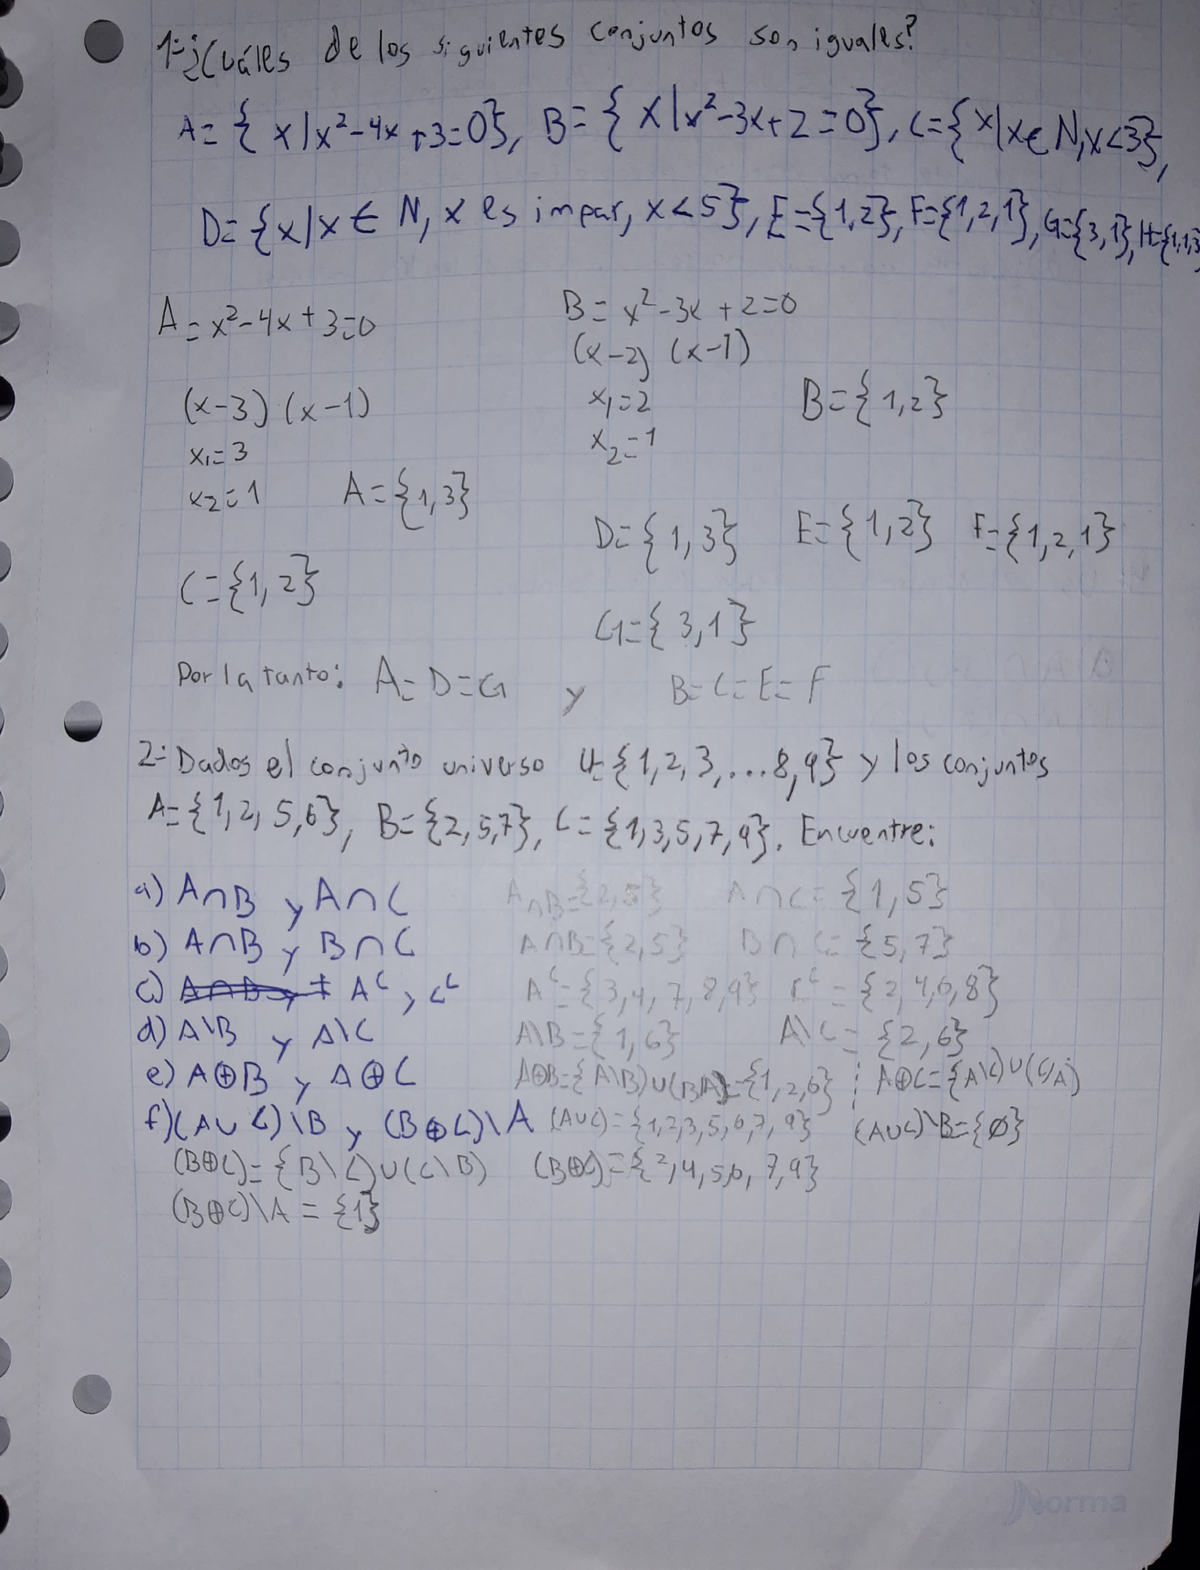 1-¿Cuáles de los siguientes conjuntos son iguales?
A={x|x²-4x+3=0}, B={x|x²-3x+2=0}, C={x|x∈N,x<3},
D={x|x∈N, x es impar, x<5}, E={1,2}, F={1,2,1}, G={3,1}, H={1,1,3}
A=x²-4x+3=0 B=x²-3x+2=0
(x-2) (x-1)
(x-3) (x-1) x₁=2 B={1,2}
x₁=3 x₂=1
x₂=1 A={1,3}
D={1,3} E={1,2} F={1,2,1}
C={1,2}
G={3,1}
Por la tanto: A=D=G y B=C=E=F
2-Dados el conjunto universo U={1,2,3,...8,9} y los conjuntos
A={1,2,5,6}, B={2,5,7}, C={1,3,5,7,9}. Encuentre:
a) A∩B y A∩C A∩B={2,5} A∩C={1,5}
b) A∩B y B∩C A∩B={2,5} B∩C={5,7}
c) Aᶜ y Cᶜ Aᶜ={3,4,7,8,9} Cᶜ={2,4,6,8}
d) A\B y A\C A\B={1,6} A\C={2,6}
e) A⊕B y A⊕C A⊕B={A\B)∪(B\A)={1,2,6} ; A⊕C={A\C)∪(C/A)
f)(A∪C)\B y (B⊕C)\A (A∪C)={1,2,3,5,6,7,9} (A∪C)\B={∅}
(B⊕C)={B\C)∪(C\B) (B⊕C)={2,4,5,6,7,9}
(B⊕C)\A={1}
Norma